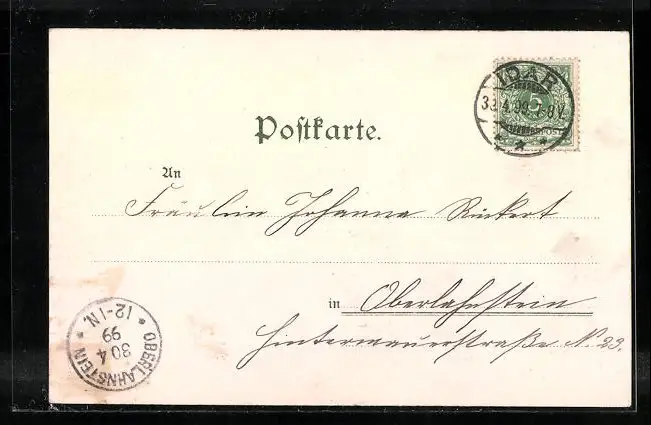 IDAR
4.99
Postkarte.
An
Fräulein Johanna Rückert
in Oberlahnstein
Hintermauerstraße N. 23.
OBERLAHNSTEIN
30 4
99
* 12-1N *